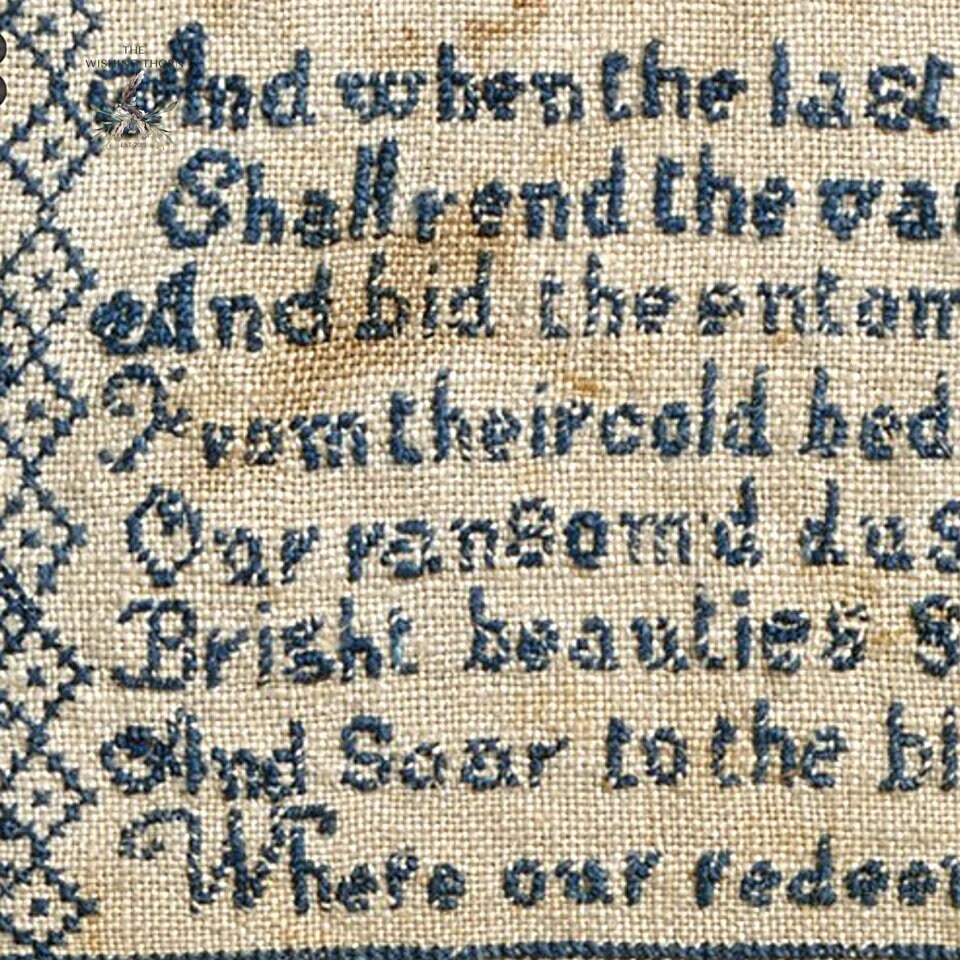 THE
WISHING THORN
And when the last
Shall rend the va
And bid the entom
From their cold bed
Our ransomd dus
Bright beauties s
And Soar to the bl
Where our redeem